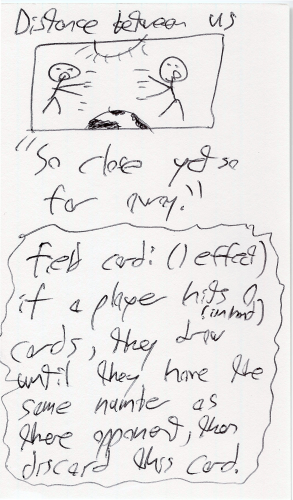 Distance between us
"So close yet so
far away."
field card: (1 effect)
if a player hits 0
(in hand)
cards, they draw
until they have the
same number as
there opponent, then
discard this card.